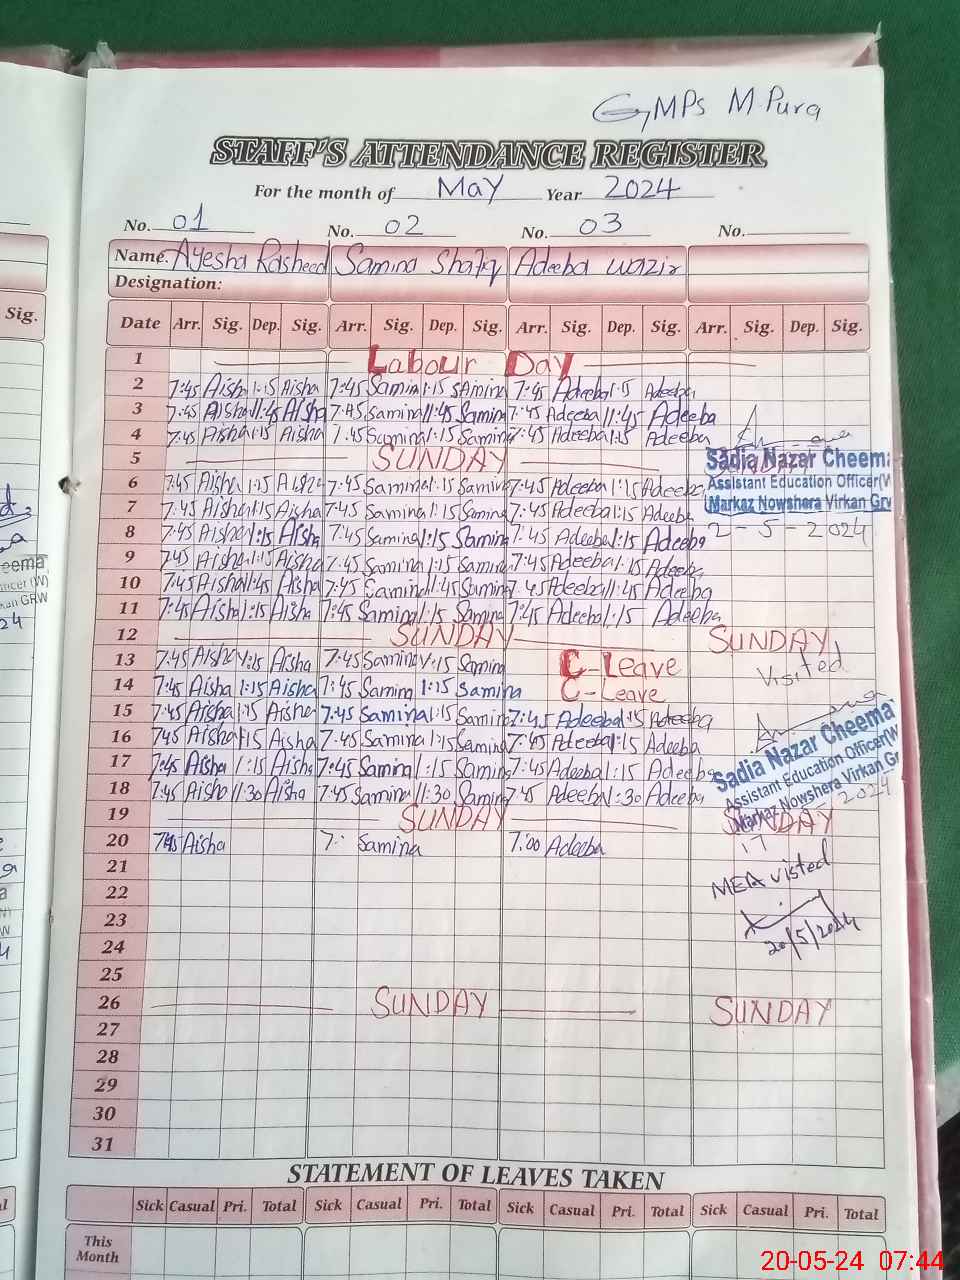 GMPS M.Pura
STAFF'S ATTENDANCE REGISTER
For the month of May Year 2024
No. 01 No. 02 No. 03 No.
Name. Ayesha Rasheed Samina Shafiq Adeeba wazir
Designation:
Sig. Date Arr. Sig. Dep. Sig. Arr. Sig. Dep. Sig. Arr. Sig. Dep. Sig. Arr. Sig. Dep. Sig.
1 Labour Day
2 7:45 Aisha 1:15 Aisha 7:45 Samina 1:15 Samina 7:45 Adeeba 1:15 Adeeba
3 7:45 Aisha 11:45 Aisha 7:45 Samina 11:45 Samina 7:45 Adeeba 11:45 Adeeba
4 7:45 Aisha 1:15 Aisha 7:45 Samina 1:15 Samina 7:45 Adeeba 1:15 Adeeba
5 SUNDAY
Sadia Nazar Cheema
Assistant Education Officer(W
Markaz Nowshera Virkan Grw
6 7:45 Aisha 1:15 7:45 Samina 1:15 Samina 7:45 Adeeba 1:15 Adeeba
7 7:45 Aisha 1:15 Aisha 7:45 Samina 1:15 Samina 7:45 Adeeba 1:15 Adeeba
8 7:45 Aisha 1:15 Aisha 7:45 Samina 1:15 Samina 7:45 Adeeba 1:15 Adeeba 2-5-2024
9 7:45 Aisha 1:15 Aisha 7:45 Samina 1:15 Samina 7:45 Adeeba 1:15 Adeeba
10 7:45 Aisha 11:45 Aisha 7:45 Samina 11:45 Samina 7:45 Adeeba 11:45 Adeeba
11 7:45 Aisha 1:15 Aisha 7:45 Samina 1:15 Samina 7:45 Adeeba 1:15 Adeeba
12 SUNDAY SUNDAY
13 7:45 Aisha 1:15 Aisha 7:45 Samina 1:15 Samina C-Leave Visited
14 7:45 Aisha 1:15 Aisha 7:45 Samina 1:15 Samina C-Leave
15 7:45 Aisha 1:15 Aisha 7:45 Samina 1:15 Samina 7:45 Adeeba 1:15 Adeeba
16 7:45 Aisha 1:15 Aisha 7:45 Samina 1:15 Samina 7:45 Adeeba 1:15 Adeeba
17 7:45 Aisha 1:15 Aisha 7:45 Samina 1:15 Samina 7:45 Adeeba 1:15 Adeeba
Sadia Nazar Cheema
Assistant Education Officer(W
Markaz Nowshera Virkan Gr
18 7:45 Aisha 1:30 Aisha 7:45 Samina 1:30 Samina 7:45 Adeeba 1:30 Adeeba
19 SUNDAY SUNDAY
20 7:45 Aisha Samina 7:00 Adeeba 17
21
MEA visted
22
20/5/2024
23
24
25
26 SUNDAY SUNDAY
27
28
29
30
31
STATEMENT OF LEAVES TAKEN
Sick Casual Pri. Total Sick Casual Pri. Total Sick Casual Pri. Total Sick Casual Pri. Total
This
Month
20-05-24 07:44